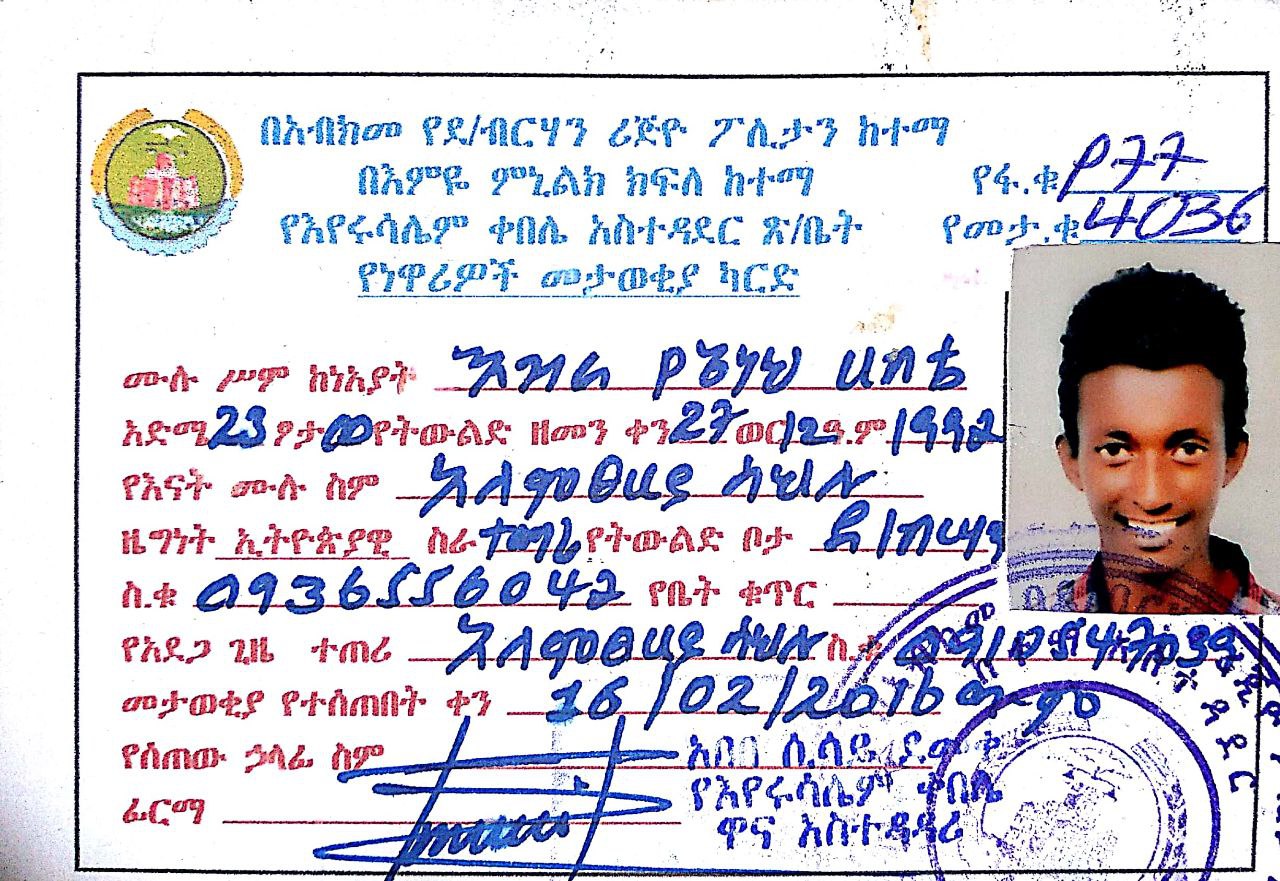 በአብክመ የደ/ብርሃን ሪጅዮ ፖሊታን ከተማ
በእምዬ ምኒልክ ክፍለ ከተማ
የፋ.ቁ የ77
የእየሩሳሌም ቀበሌ አስተዳደር ጽ/ቤት
የመታ.ቁ 4036
የነዋሪዎች መታወቂያ ካርድ
ሙሉ ሥም ከነአያት ሀብቴ
እድሜ 23 ፆታ ወ የትውልድ ዘመን ቀን 27 ወር 12 ዓ.ም 1992
የእናት ሙሉ ስም አለምፀሀይ ሳህሉ
ዜግነት ኢትዮጵያዊ ስራ ተማሪ የትውልድ ቦታ ደ/ብርሃን
ስ.ቁ 0936556042 የቤት ቁጥር
የአደጋ ጊዜ ተጠሪ አለምፀሀይ ሳህሉ ስ.ቁ
መታወቂያ የተሰጠበት ቀን 16/02/2016 ዓ.ም
የሰጠው ኃላፊ ስም አበበ ሲሳይ
የእየሩሳሌም ቀበሌ
ፊርማ
ዋና አስተዳዳሪ